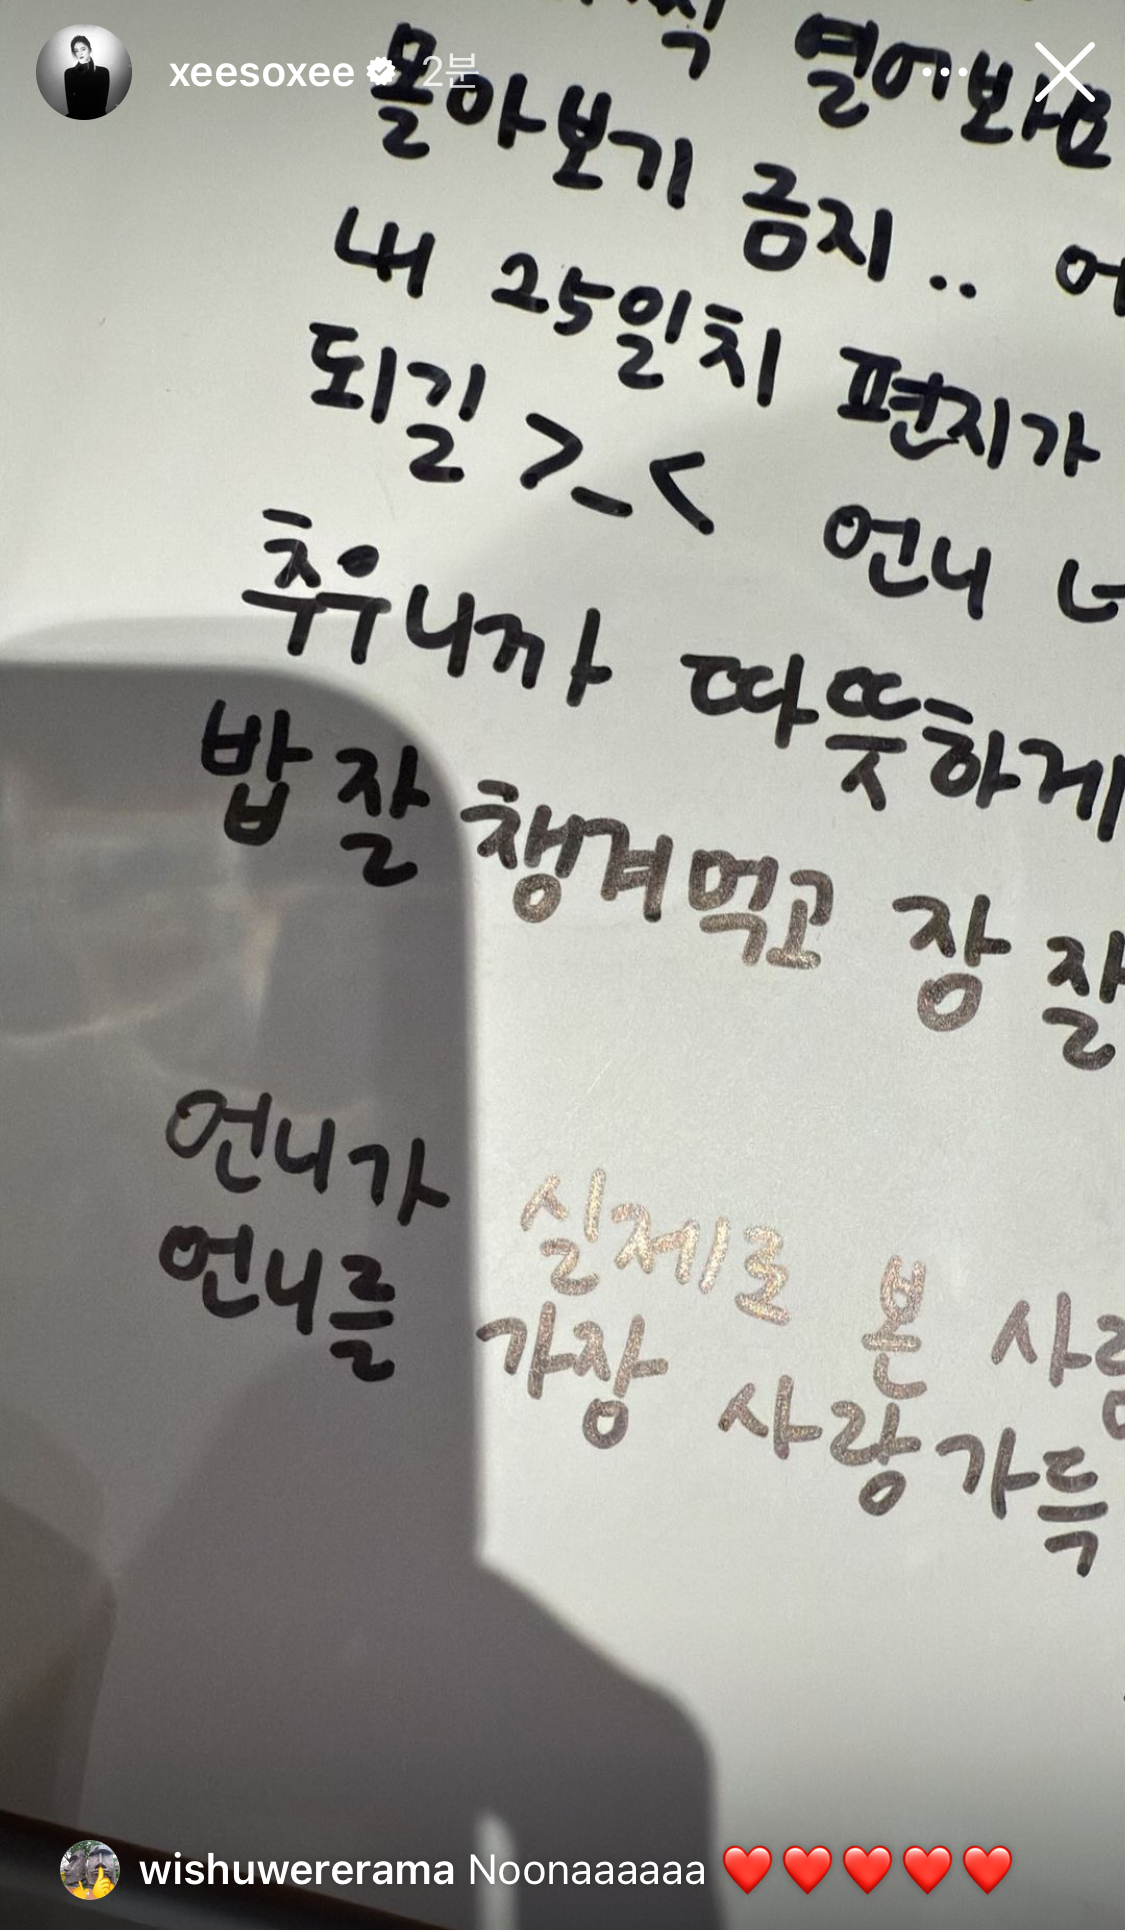 xeesoxee 2분
열어봐요
몰아보기 금지..
내 25일치 편지가
되길 >_< 언니
추우니까 따뜻하게
밥 잘 챙겨먹고 장 잘
언니가 실제로 본
언니를 가장 사랑가득
wishuwererama Noonaaaaaa ❤️❤️❤️❤️❤️